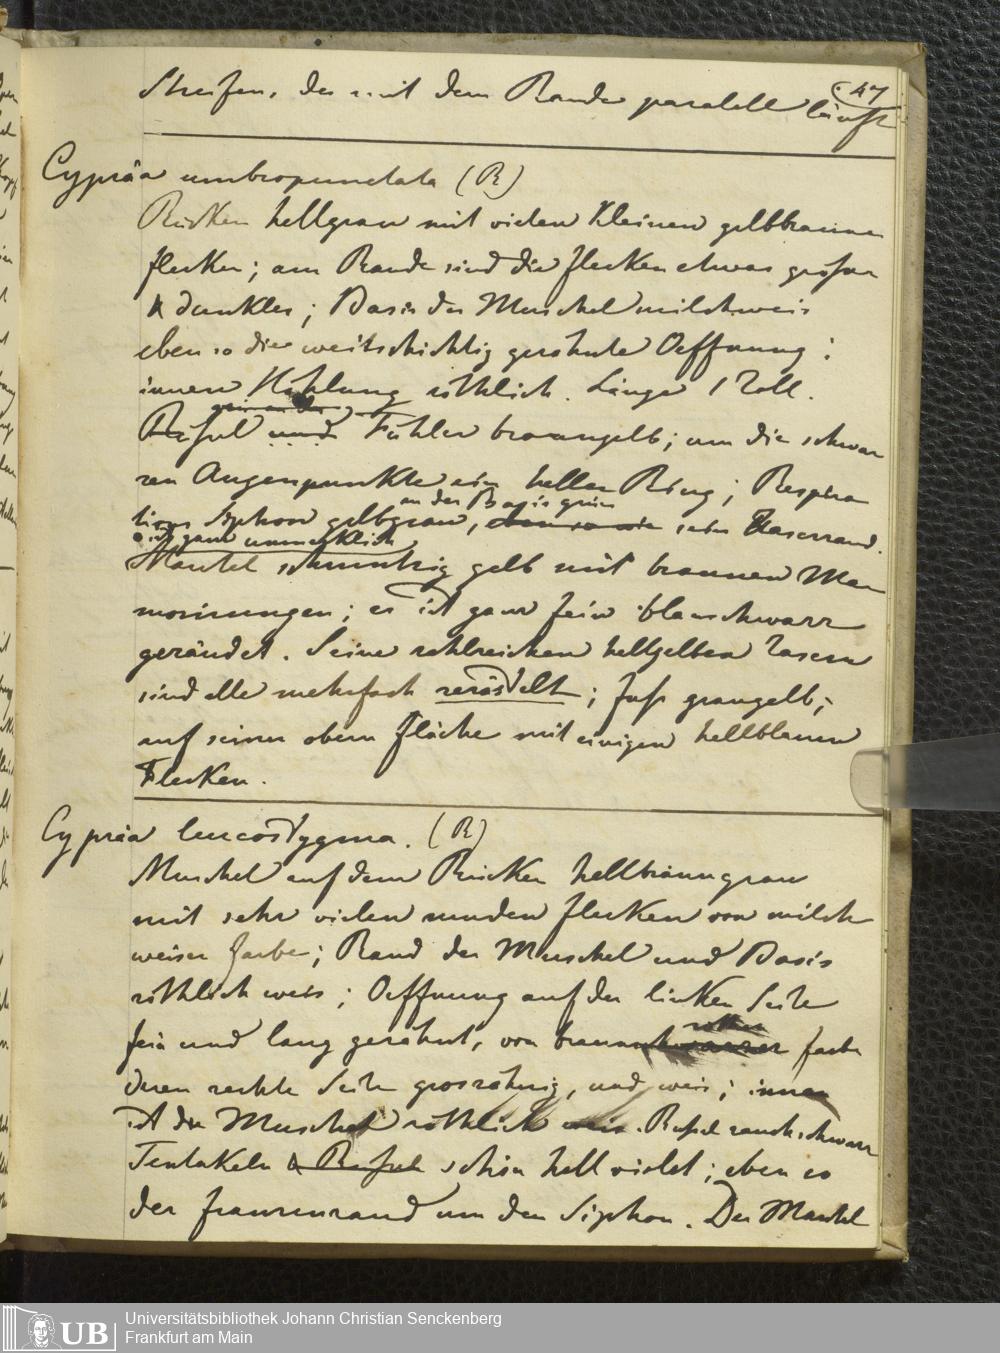 47
Streifen, der mit dem Rande paralell läuft
Cypräa umbropunctata (R)
Rücken hellgrau mit vielen kleinen gelbbraunen
flecken; am Rande sind die flecken etwas grösser
& dunkler; Basis der Muschel milchweis
eben so die weitschichtig gezähnte Oeffnung;
innere Höhlung röthlich. Länge 1 Zoll.
Rüssel und Fühler braungelb; um die schwar
zen Augenpunkte ein heller Ring; Respira
an der Basis grün
tions Siphon gelbgrau, eben so wie sein Zaserrand.
ganz unmerklich
Mantel schmutzig gelb mit braunen Mar
morirungen; er ist ganz fein blauschwarz
gerändet. Seine zahlreichen hellgelben Zasern
sind alle mehrfach zerästelt; fuss graugelb;
auf seiner obern fläche mit einigen hellblauen
Flecken.
Cypräa leucostygma. (R)
Muschel auf dem Rücken hellbraungrau
mit sehr vielen runden flecken von milch
weiser farbe; Rand der Muschel und Basis
röthlich weis; Oeffnung auf der linken Seite
rother
fein und lang gezähnt, von braunschwarzer farbe
deren rechte Seite groszähnig, und weis; innen
ist die Muschel röthlich weis. Rüssel rauchschwarz
Tentakeln & Rüssel schön hell violet; eben so
der franzenrand um den Siphon. Der Mantel
Universitätsbibliothek Johann Christian Senckenberg
Frankfurt am Main
UB